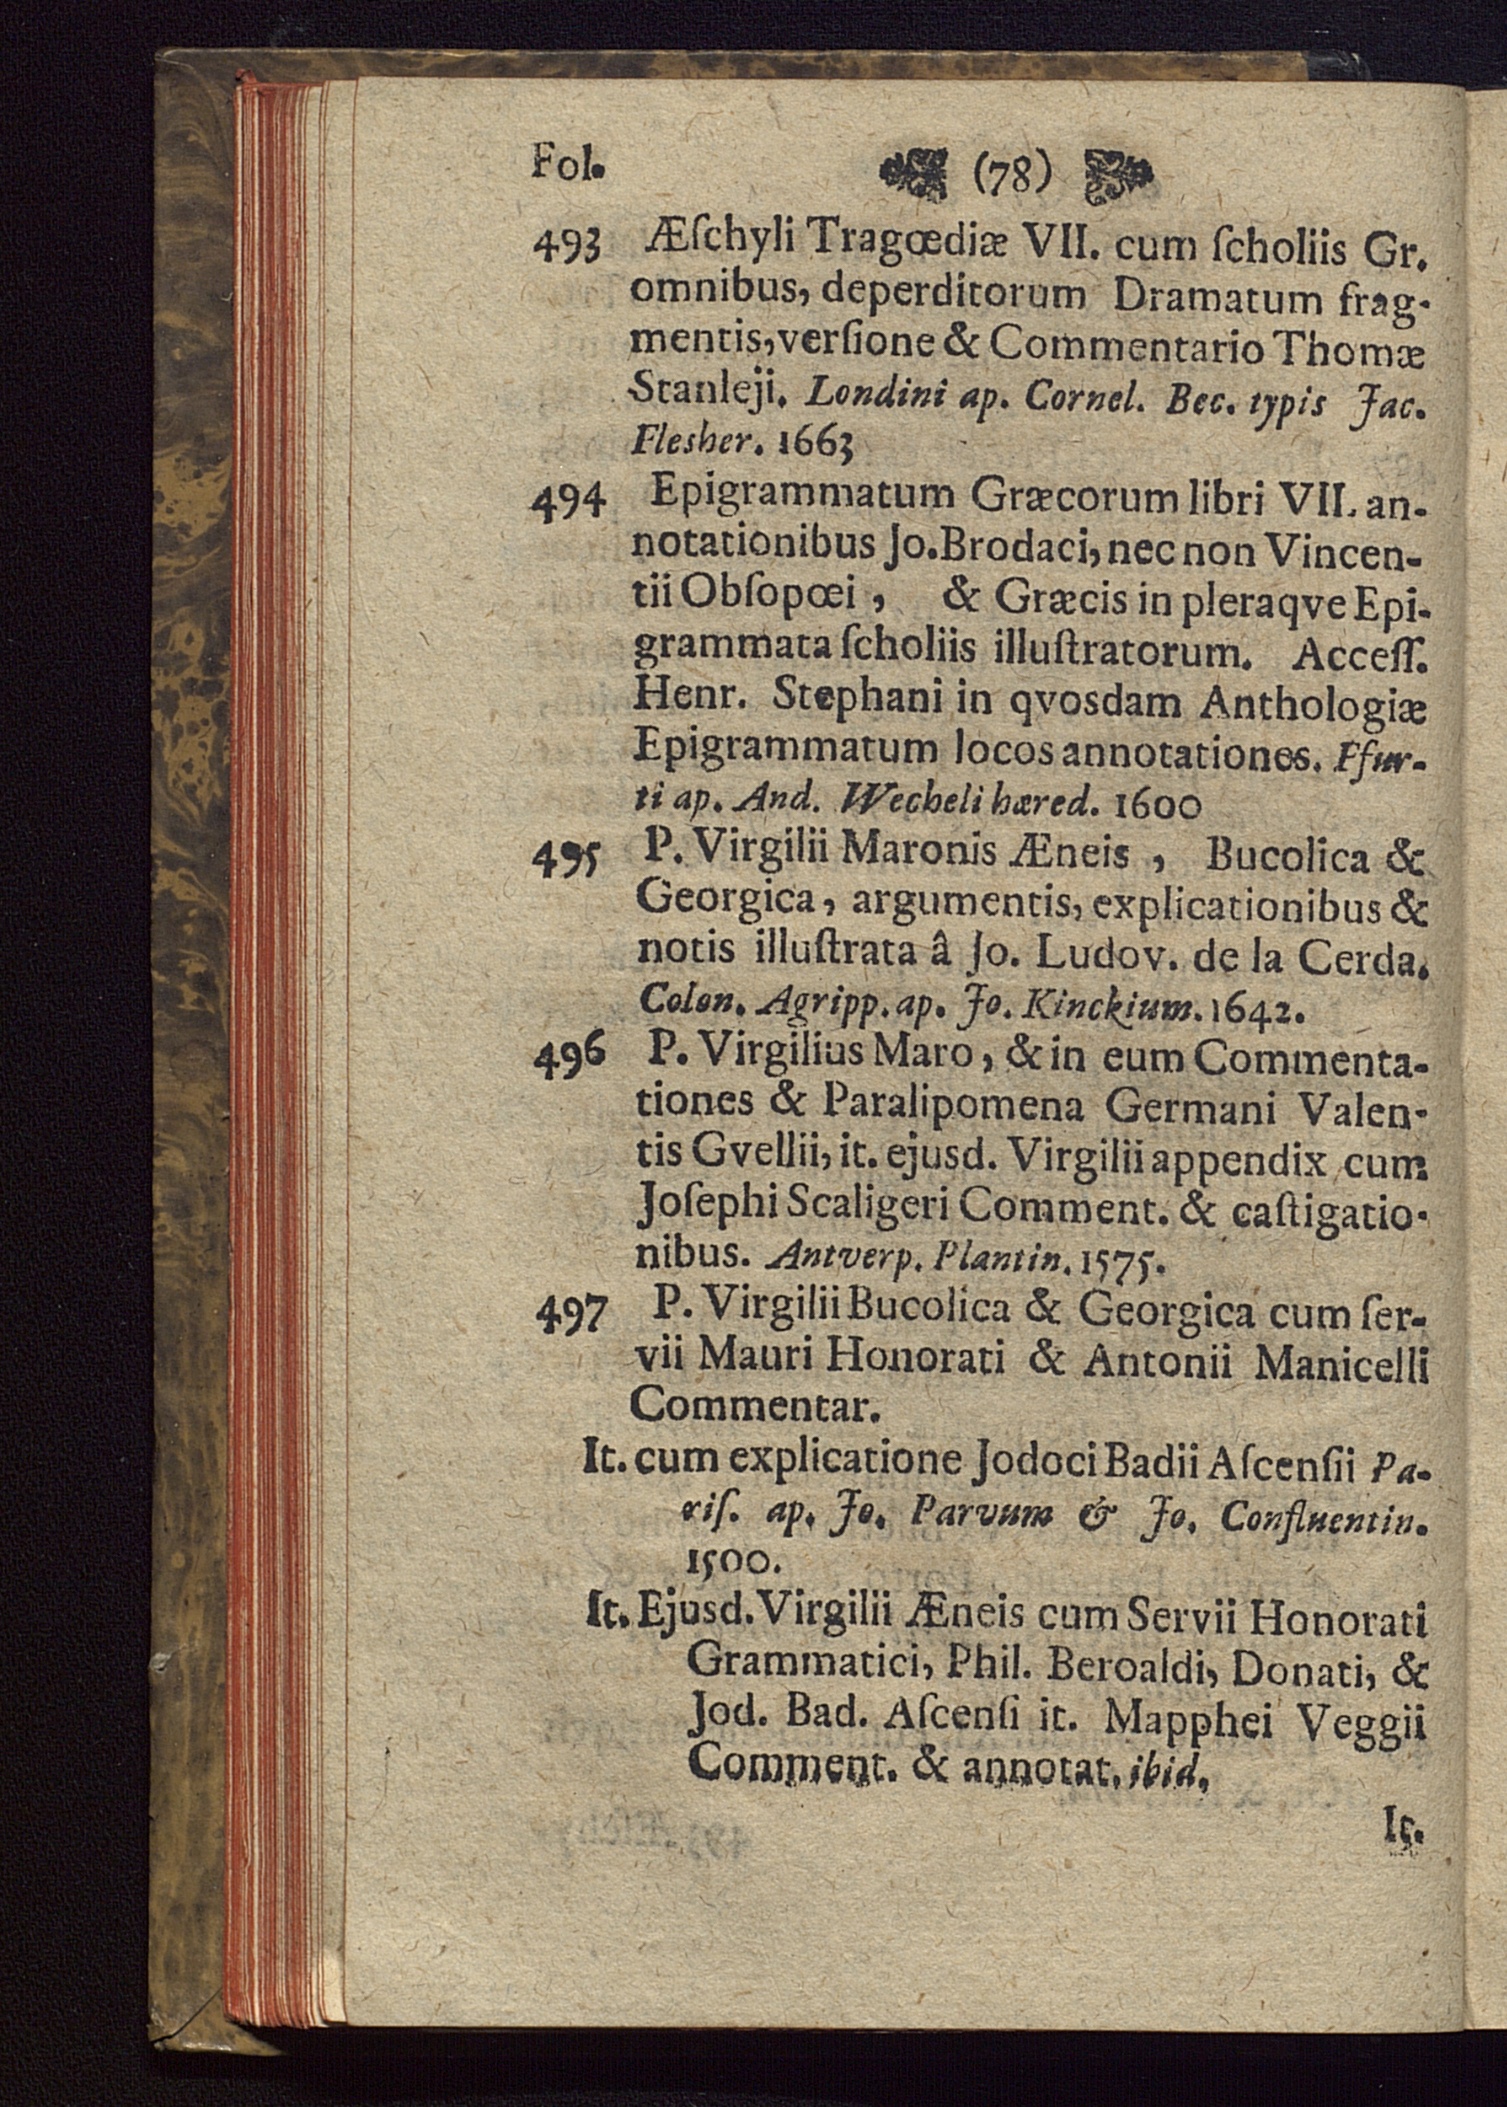 Fol. (78)
493 Æſchyli Tragœdiæ VII. cum ſcholiis Gr.
omnibus, deperditorum Dramatum frag-
mentis, verſione & Commentario Thomæ
Stanleji. Londini ap. Cornel. Bec. typis Jac.
Flesher. 1663
494 Epigrammatum Græcorum libri VII. an-
notationibus Jo. Brodaci, nec non Vincen-
tii Obſopœi, & Græcis in pleraqve Epi-
grammata ſcholiis illuſtratorum. Acceſſ.
Henr. Stephani in qvosdam Anthologiæ
Epigrammatum locos annotationes. Ffur-
ti ap. And. Wecheli hæred. 1600
495 P. Virgilii Maronis Æneis, Bucolica &
Georgica, argumentis, explicationibus &
notis illuſtrata â Jo. Ludov. de la Cerda.
Colon. Agripp. ap. Jo. Kinckium. 1642.
496 P. Virgilius Maro, & in eum Commenta-
tiones & Paralipomena Germani Valen-
tis Gvellii, it. ejusd. Virgilii appendix cum
Joſephi Scaligeri Comment. & caſtigatio-
nibus. Antverp. Plantin. 1575.
497 P. Virgilii Bucolica & Georgica cum ſer-
vii Mauri Honorati & Antonii Manicelli
Commentar.
It. cum explicatione Jodoci Badii Aſcenſii Pa-
riſ. ap. Jo. Parvum & Jo. Confluentin.
1500.
It. Ejusd. Virgilii Æneis cum Servii Honorati
Grammatici, Phil. Beroaldi, Donati, &
Jod. Bad. Aſcenſi it. Mapphei Veggii
Comment. & annotat. ibid.
It.